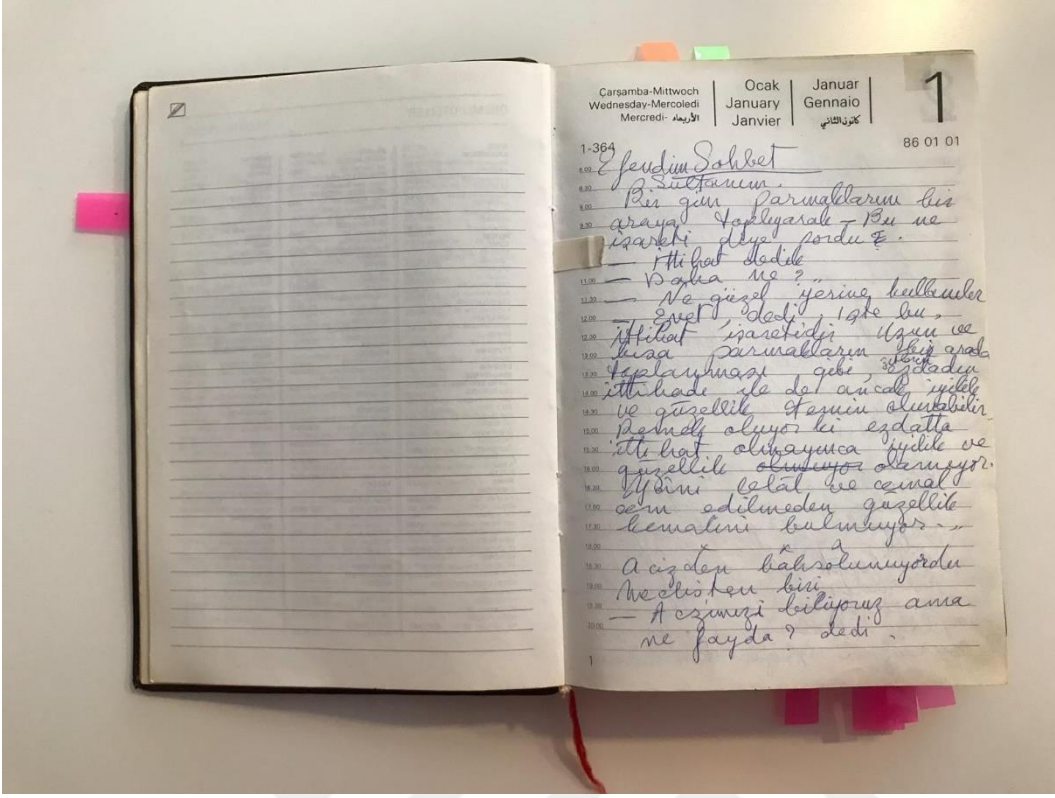 Çarşamba-Mittwoch
Wednesday-Mercoledi
Mercredi- الأربعاء
Ocak
January
Janvier
Januar
Gennaio
كانون الثاني
1
1-364
86 01 01
Efendim Sohbet
Sultanım.
Bir gün parmaklarını bir
araya toplıyarak – Bu ne
işareti diye sordu.
— İttihat dedik
— Daha ne?
— Ne güzel yerine kullanılır
— Evet dedi, işte bu,
ittihat işaretidir uzun ve
kısa parmakların bir arada
toplanması gibi, ezdadın
ittihadı ile de ancak iyilik
ve güzellik temin olunabilir
Demek oluyor ki ezdatta
ittihat olmayınca iyilik ve
güzellik olmuyor olamıyor.
Yâni celâl ve cemal
cem edilmeden güzellik
kemalini bulmuyor.,,
x x
Acizden bahsolunuyordu
Meclisten biri
— Aczimizi biliyoruz ama
ne fayda? dedi.
8.00
8.30
9.00
9.30
11.00
11.30
12.00
12.30
13.00
13.30
14.00
14.30
15.00
15.30
16.00
16.30
17.00
17.30
18.00
18.30
19.00
19.30
20.00
1